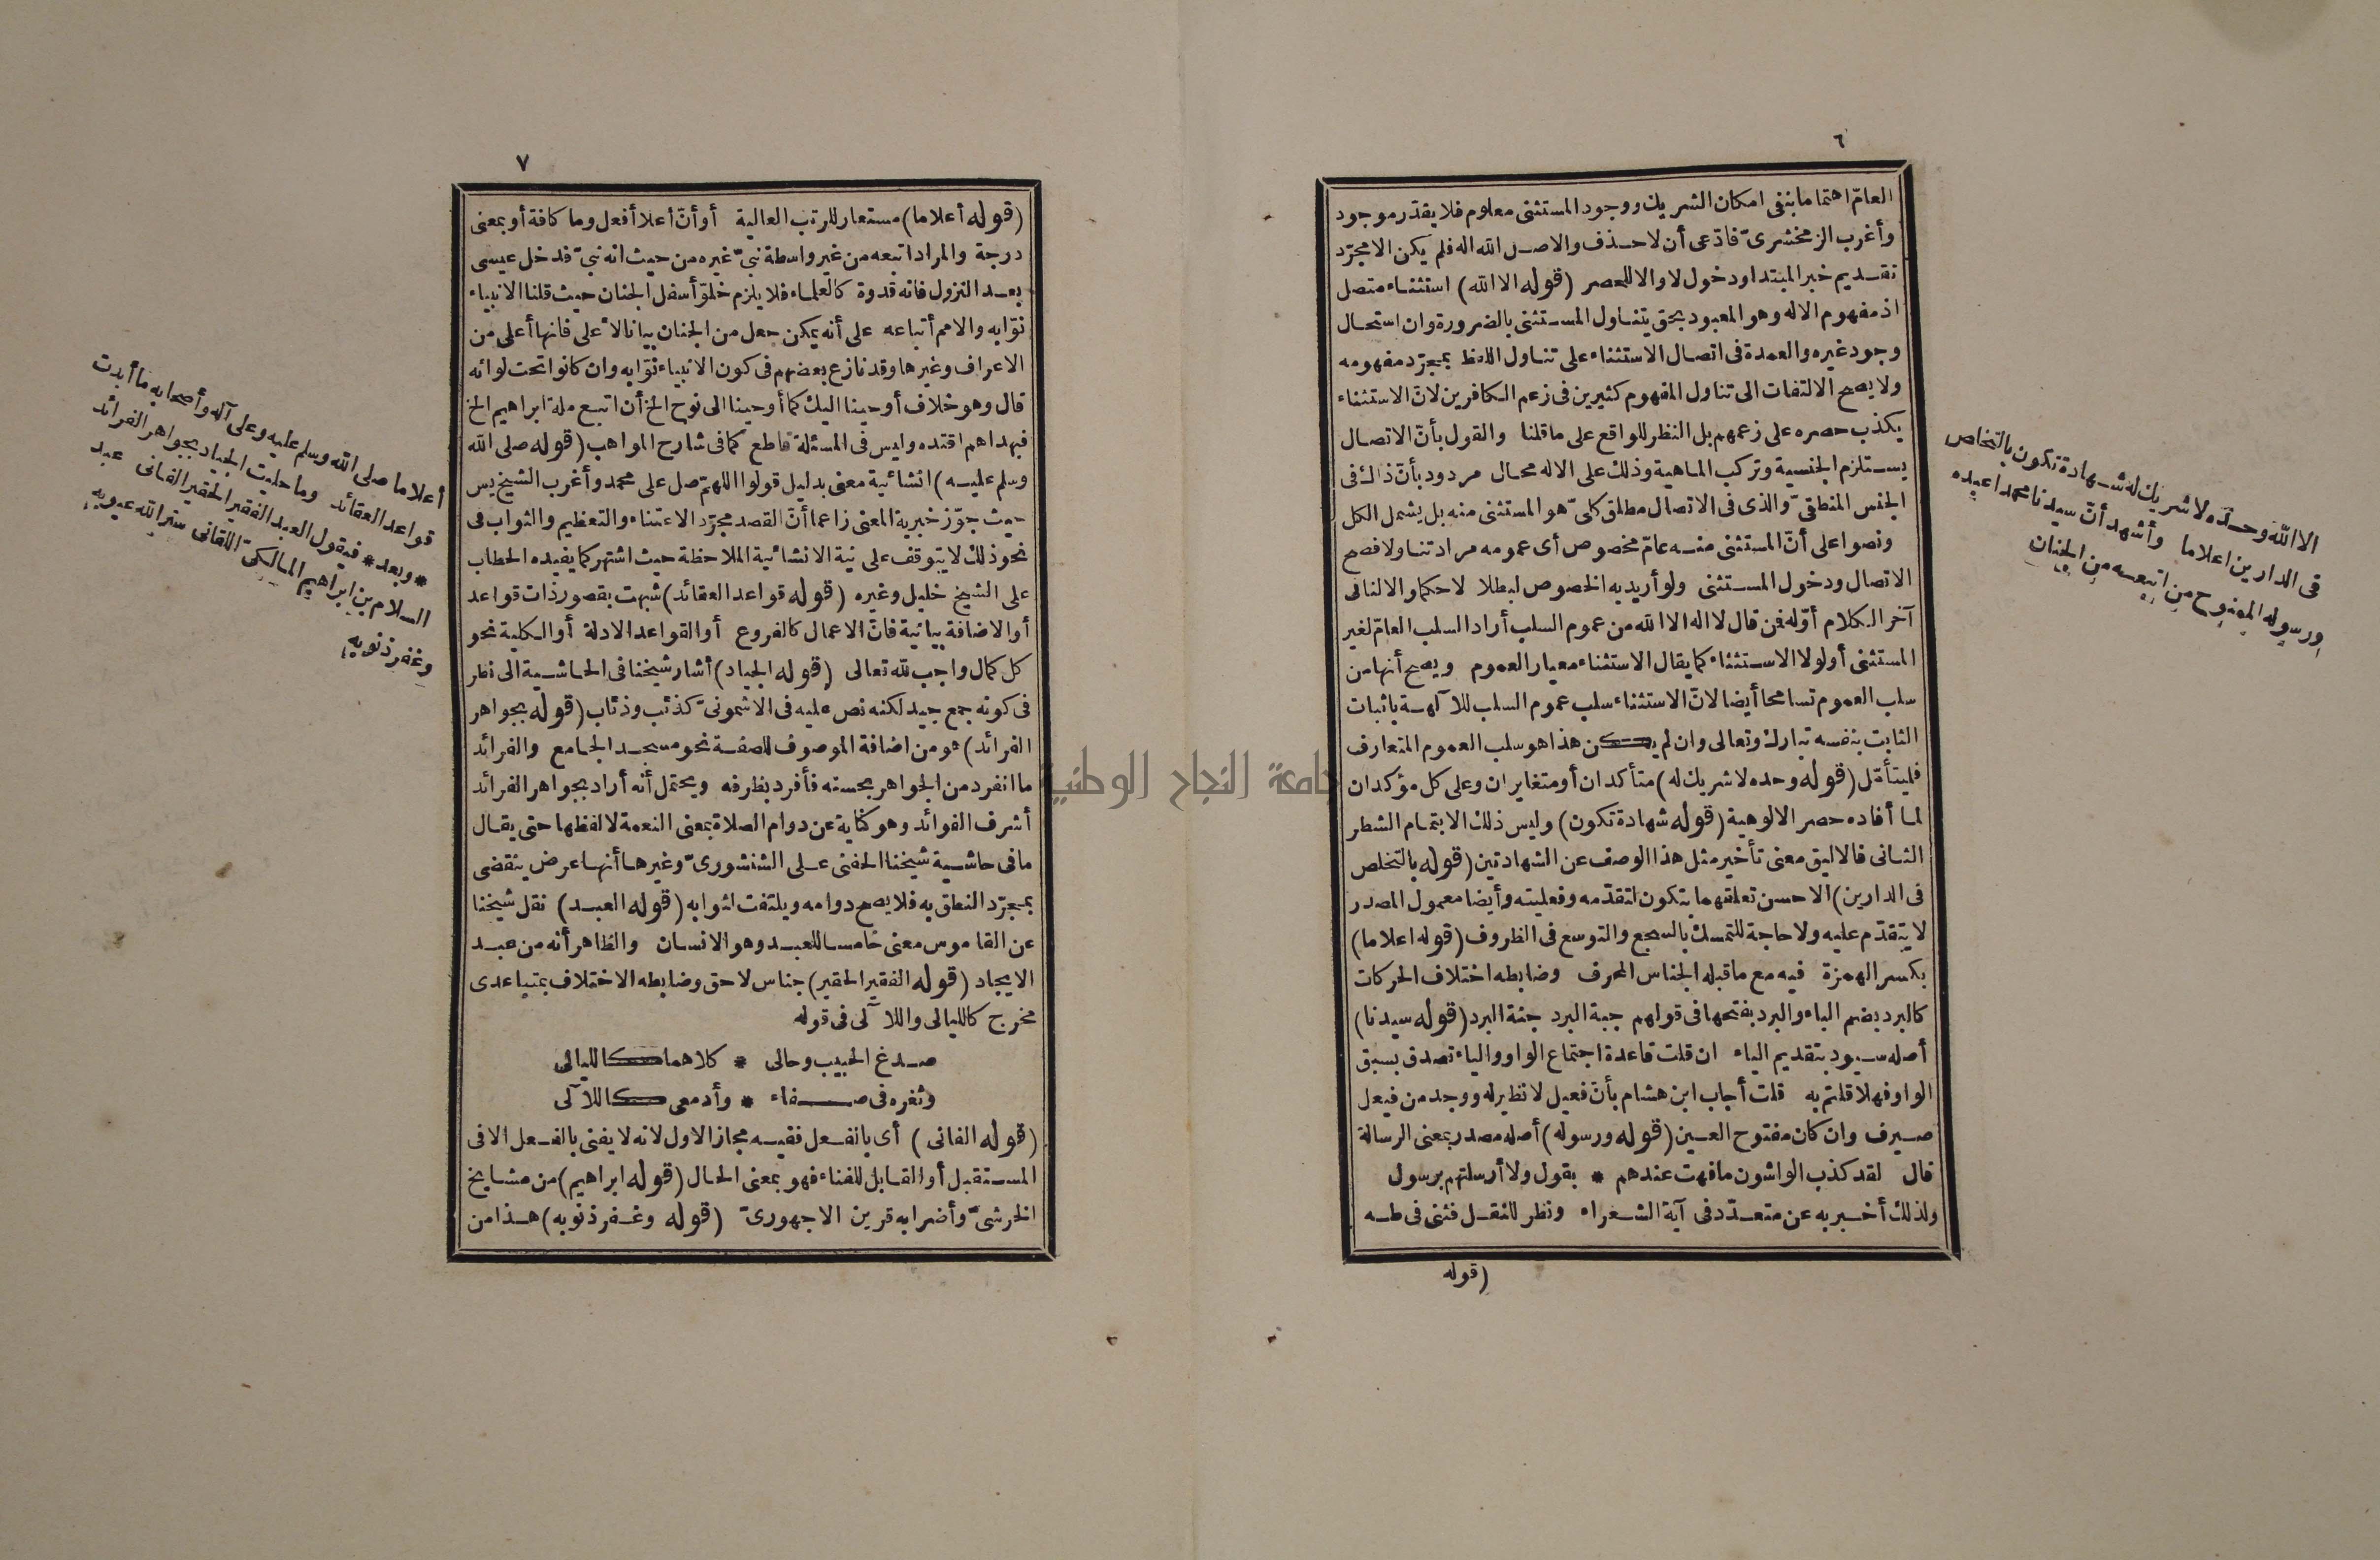 ٦
العامّ اهتماما بنفى امكان الشريك ووجود المستثنى معلوم فلا يقدّر موجود
وأغرب الزمخشرىّ فادّعى أن لاحذف والاصل الله اله فلم يكن الا مجرّد
تقديم خبر المبتدا ودخول لا والا للحصر (قوله الا الله) استثناء متصل
اذ مفهوم الاله وهو المعبود بحق يتناول المستثنى بالضرورة وان استحال
وجود غيره والعمدة فى اتصال الاستثناء على تناول اللفظ بمجرّد مفهومه
ولا يصح الالتفات الى تناول المفهوم كثيرين فى زعم الكافرين لانّ الاستثناء
يكذب حصره على زعمهم بل النظر للواقع على ما قلنا والقول بأنّ الاتصال
يستلزم الجنسية وتركب الماهية وذلك على الاله محال مردود بأنّ ذاك فى
الجنس المنطقىّ والذى فى الاتصال مطلق كلىّ هو المستثنى منه بل يشمل الكل
ونصوا على أنّ المستثنى منه عامّ مخصوص أى عمومه مراد تناولا فصح
الاتصال ودخول المستثنى ولو أريد به الخصوص لبطلا لا حكما والا لنافى
آخر الكلام أوّله فمن قال لا اله الا الله من عموم السلب أراد السلب العامّ لغير
المستثنى أو لولا الاستثناء كما يقال الاستثناء معيار العموم ويصح أنها من
سلب العموم تسامحا أيضا لانّ الاستثناء سلب عموم السلب للآلهة باثبات
الثابت بنفسه تبارك وتعالى وان لم يكن هذا هو سلب العموم المتعارف
فليتأمّل (قوله وحده لا شريك له) متأكدان أو متغايران وعلى كل مؤكدان
لما أفاده حصر الالوهية (قوله شهادة تكون) وليس ذلك الا بتمام الشطر
الثانى فالاليق معنى تأخير مثل هذا الوصف عن الشهادتين (قوله بالتخلص
فى الدارين) الاحسن تعلقهما بتكون لتقدّمه وفعليته وأيضا معمول المصدر
لا يتقدّم عليه ولا حاجة للتمسك بالسجع والتوسع فى الظروف (قوله اعلاما)
بكسر الهمزة فيه مع ما قبله الجناس المحرف وضابطه اختلاف الحركات
كالبرد بضم الباء والبرد بفتحها فى قولهم جبة البرد جنة البرد (قوله سيدنا)
أصله سيود بتقديم الياء ان قلت قاعدة اجتماع الواو والياء تصدق بسبق
الواو فهلا قلتم به قلت أجاب ابن هشام بأنّ فعيل لا نظير له ووجد من فيعل
صيرف وان كان مفتوح العين (قوله ورسوله) أصله مصدر بمعنى الرسالة
قال لقد كذب الواشون ما فهت عندهم * بقول ولا أرسلتهم برسول
ولذلك أخبر به عن متعدّد فى آية الشعراء ونظر للنقل فثنى فى طه
(قوله
الا الله وحده لا شريك له شهادة تكون بالتخلص
فى الدارين اعلاما وأشهد أنّ سيدنا محمدا عبده
ورسوله الممنوح من اتبعه من الجنان
٧
(قوله أعلاما) مستعار للرتب العالية أو أنّ أعلا أفعل وما كافة أو بمعنى
درجة والمراد اتبعه من غير واسطة نبىّ غيره من حيث انه نبىّ فدخل عيسى
بعد النزول فانه قدوة كالعلماء فلا يلزم خلوّ أسفل الجنان حيث قلنا الانبياء
نوّابه والامم أتباعه على أنه يمكن جعل من الجنان بيانا لاعلى فانها أعلى من
الاعراف وغيرها وقد نازع بعضهم فى كون الانبياء نوّابه وان كانوا تحت لوائه
قال وهو خلاف أوحينا اليك كما أوحينا الى نوح الخ أن اتبع ملة ابراهيم الخ
فبهداهم اقتده وليس فى المسئلة قاطع كما فى شارح المواهب (قوله صلى الله
وسلم عليه) انشائية معنى بدليل قولوا اللهم صل على محمد وأغرب الشيخ يس
حيث جوّز خبرية المعنى زاعما أنّ القصد مجرّد الاعتناء والتعظيم والثواب فى
نحو ذلك لا يتوقف على نية الانشائية الملاحظة حيث اشتهر كما يفيده الحطاب
على الشيخ خليل وغيره (قوله قواعد العقائد) شبهت بقصور ذات قواعد
أو الاضافة بيانية فانّ الاعمال كالفروع أو القواعد الادلة أو الكلية نحو
كل كمال واجب لله تعالى (قوله الجياد) أشار شيخنا فى الحاشية الى نظر
فى كونه جمع جيد لكنه نص عليه فى الاشمونىّ كذئب وذئاب (قوله بجواهر
الفرائد) هو من اضافة الموصوف للصفة نحو مسجد الجامع والفرائد
ما انفرد من الجواهر بحسنه فأفرد بظرفه ويحتمل أنه أراد بجواهر الفرائد
أشرف الفوائد وهو كناية عن دوام الصلاة بمعنى النعمة لا لفظها حتى يقال
ما فى حاشية شيخنا الحفنى على الشنشورىّ وغيرها أنها عرض ينقضى
بمجرّد النطق به فلا يصح دوامه ويلتفت لثوابه (قوله العبد) نقل شيخنا
عن القاموس معنى خامسا للعبد وهو الانسان والظاهر أنه من عبد
الايجاد (قوله الفقير الحقير) جناس لاحق وضابطه الاختلاف بمتباعدى
مخرج كالليالى واللآلى فى قوله
صدغ الحبيب وحالى * كلاهما كالليالى
وثغره فى صفاء * وأدمعى كاللآلى
(قوله الفانى) أى بالفعل ففيه مجاز الاول لانه لا يفنى بالفعل الا فى
المستقبل أو القابل للفناء فهو بمعنى الحال (قوله ابراهيم) من مشايخ
الخرشىّ وأضرابه قرين الاجهورىّ (قوله وغفر ذنوبه) هذا من
أعلاما صلى الله وسلم عليه وعلى آله وأصحابه ما أبدت
قواعد العقائد وما حليت الجياد بجواهر الفرائد
* وبعد * فيقول العبد الفقير الحقير الفانى عبد
السلام بن ابراهيم المالكىّ اللقانى ستر الله عيوبه
وغفر ذنوبه
جامعة النجاح الوطنية